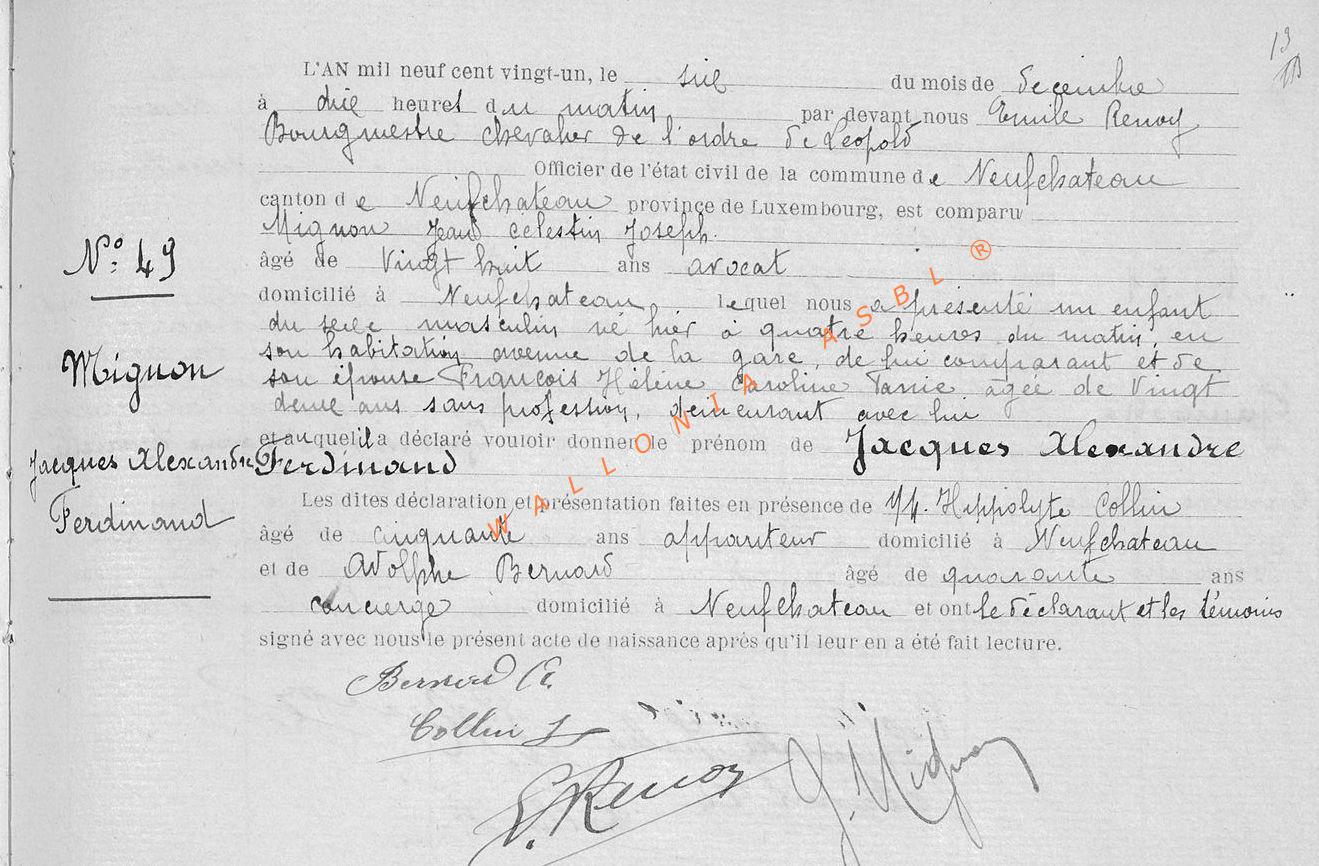 13
L'AN mil neuf cent vingt-un, le six du mois de décembre
à dix heures du matin par devant nous Emile Renoy
Bourgmestre chevalier de l'ordre de Léopold
Officier de l'état civil de la commune de Neufchateau
canton de Neufchateau province de Luxembourg, est comparu
Mignon Jean Célestin Joseph.
âgé de Vingt huit ans avocat
domicilié à Neufchateau, lequel nous a présenté un enfant
du sexe masculin né hier à quatre heures du matin, en
son habitation avenue de la gare, de lui comparant et de
son épouse François Hélène Caroline agée de Vingt
deux ans sans profession, demeurant avec lui
et auquel il a déclaré vouloir donner le prénom de Jacques Alexandre
Ferdinand
Les dites déclaration et présentation faites en présence de Hippolyte Collin
âgé de cinquante ans appariteur domicilié à Neufchateau
et de Adolphe Bernard âgé de quarante ans
concierge domicilié à Neufchateau et ont le déclarant et les témoins
signé avec nous le présent acte de naissance après qu'il leur en a été fait lecture.
N°: 49
Mignon
Jacques Alexandre
Ferdinand
Bernard
Collin
E. Renoy
J. Mignon
WALLONIA ASBL ®